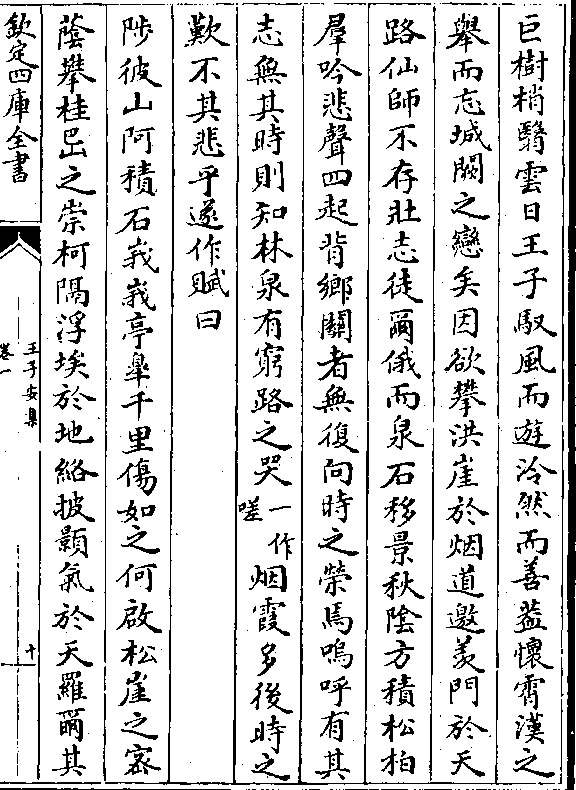 巨樹梢翳雲日王子馭風而遊泠然而善葢懷霄漢之
舉而忘城闕之戀矣因欲攀洪崖於烟道邀羨門於天
路仙師不存壯志徒爾俄而泉石移景秋陰方積松柏
羣吟悲聲四起背鄉關者無復向時之榮焉嗚呼有其
志無其時則知林泉有窮路之哭一作嗟烟霞多後時之
歎不其悲乎遂作賦曰
陟彼山阿積石峩峩亭皐千里傷如之何啟松崖之密
蔭攀桂岊之崇柯隔浮埃於地絡披顥氣於天羅爾其
欽定四庫全書
王子安集
卷一
十